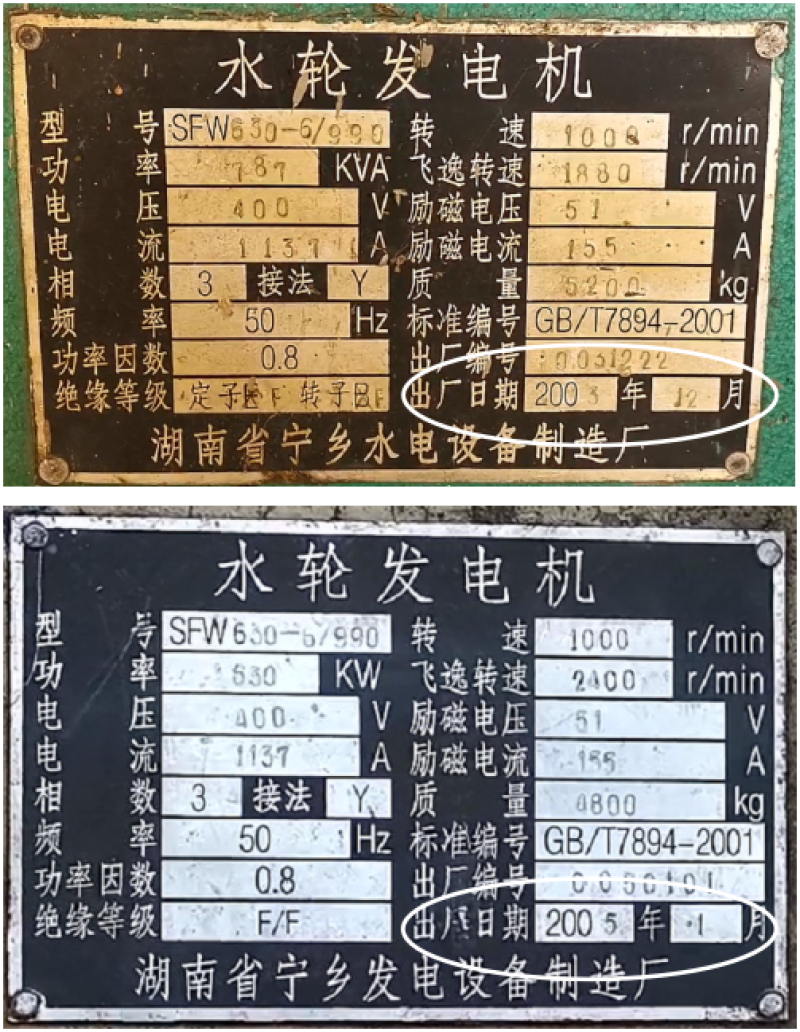 水轮发电机
型号 SFW630-6/990 转速 1000 r/min
功率 787 KVA 飞逸转速 1880 r/min
电压 400 V 励磁电压 51 V
电流 1137 A 励磁电流 155 A
相数 3 接法 Y 质量 5200 kg
频率 50 Hz 标准编号 GB/T7894-2001
功率因数 0.8 出厂编号 0031222
绝缘等级 定子 F 转子 F 出厂日期 2003 年 12 月
湖南省宁乡水电设备制造厂
水轮发电机
型号 SFW630-6/990 转速 1000 r/min
功率 630 KW 飞逸转速 2400 r/min
电压 400 V 励磁电压 51 V
电流 1137 A 励磁电流 155 A
相数 3 接法 Y 质量 4800 kg
频率 50 Hz 标准编号 GB/T7894-2001
功率因数 0.8 出厂编号 0050101
绝缘等级 F/F 出厂日期 2005 年 1 月
湖南省宁乡发电设备制造厂